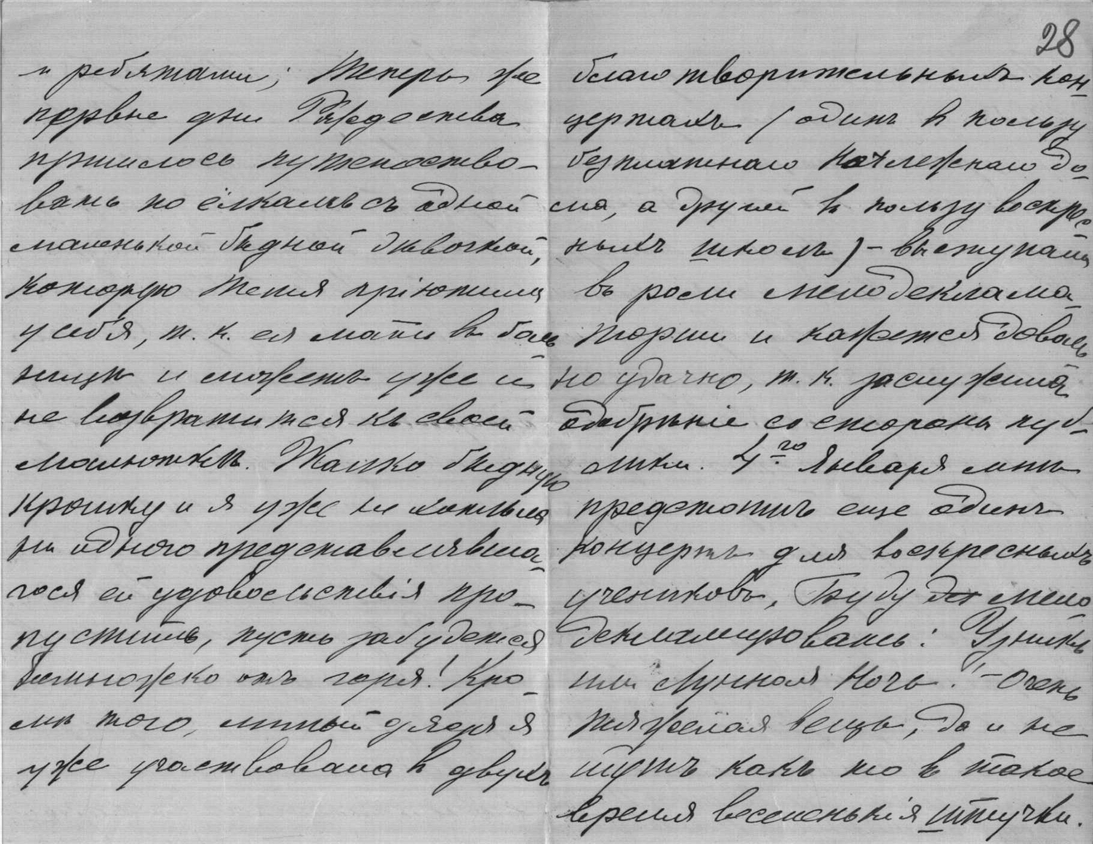 и ребятами; Теперь же
первые дни Рождества
пришлось путешество-
вать по ёлкамъ съ одной
маленькой бѣдной дѣвочкой,
которую тетя пріютила
у себя, т. к. ея мать в боль
ницѣ и можетъ уже и
не возвратится къ своей
малюткѣ. Жалко бѣдную
крошку и я уже не хотѣла
ни одного представлявша-
гося ей удовольствія про-
пустить, пусть забудется
немножко отъ горя! Кро-
мѣ того, милый дядя я
уже участвовала в двухъ
28
благотворительныхъ кон
цертахъ (одинъ в пользу
безплатнаго ночлежнаго до-
ма, а другой в пользу воскрес
ныхъ школъ) - выступала
въ роли мелодеклама
торши и кажется доволь
но удачно, т. к. заслужила
одобреніе со стороны пуб-
лики. 4го Января мнѣ
предстоитъ еще одинъ
концертъ для воскресныхъ
учениковъ, Буду мело
декламировать: Узникъ
или Лунная Ночь! - Очень
тяжелая вещь, да и не
идутъ какъ то в такое
время веселенькія штучки.